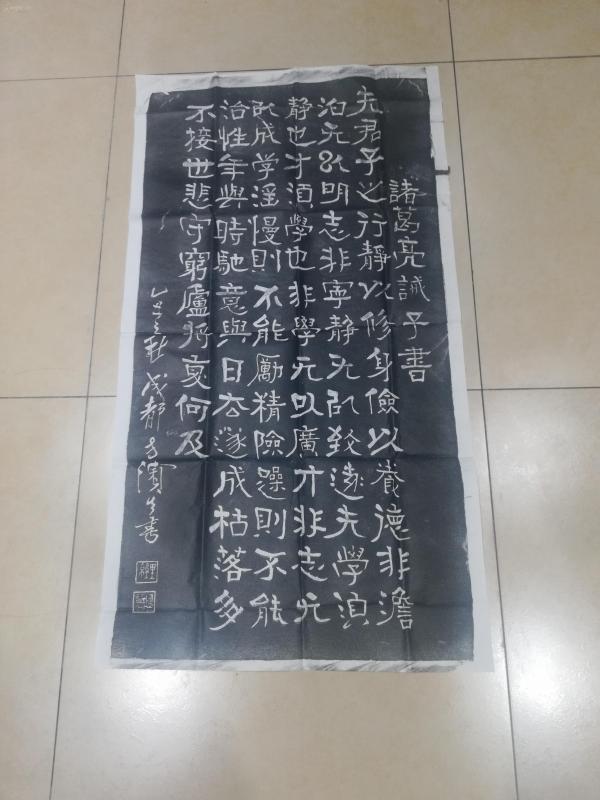 諸葛亮誡子書
夫君子之行靜以修身儉以養德非澹
泊无以明志非寧静无以致遠夫學湏
静也才湏學也非學无以廣才非志无
以成学滛慢則不能勵精險躁則不能
治性年與時馳意與日去遂成枯落多
不接世悲守窮廬将复何及
乙丑之秋成都方濱生書